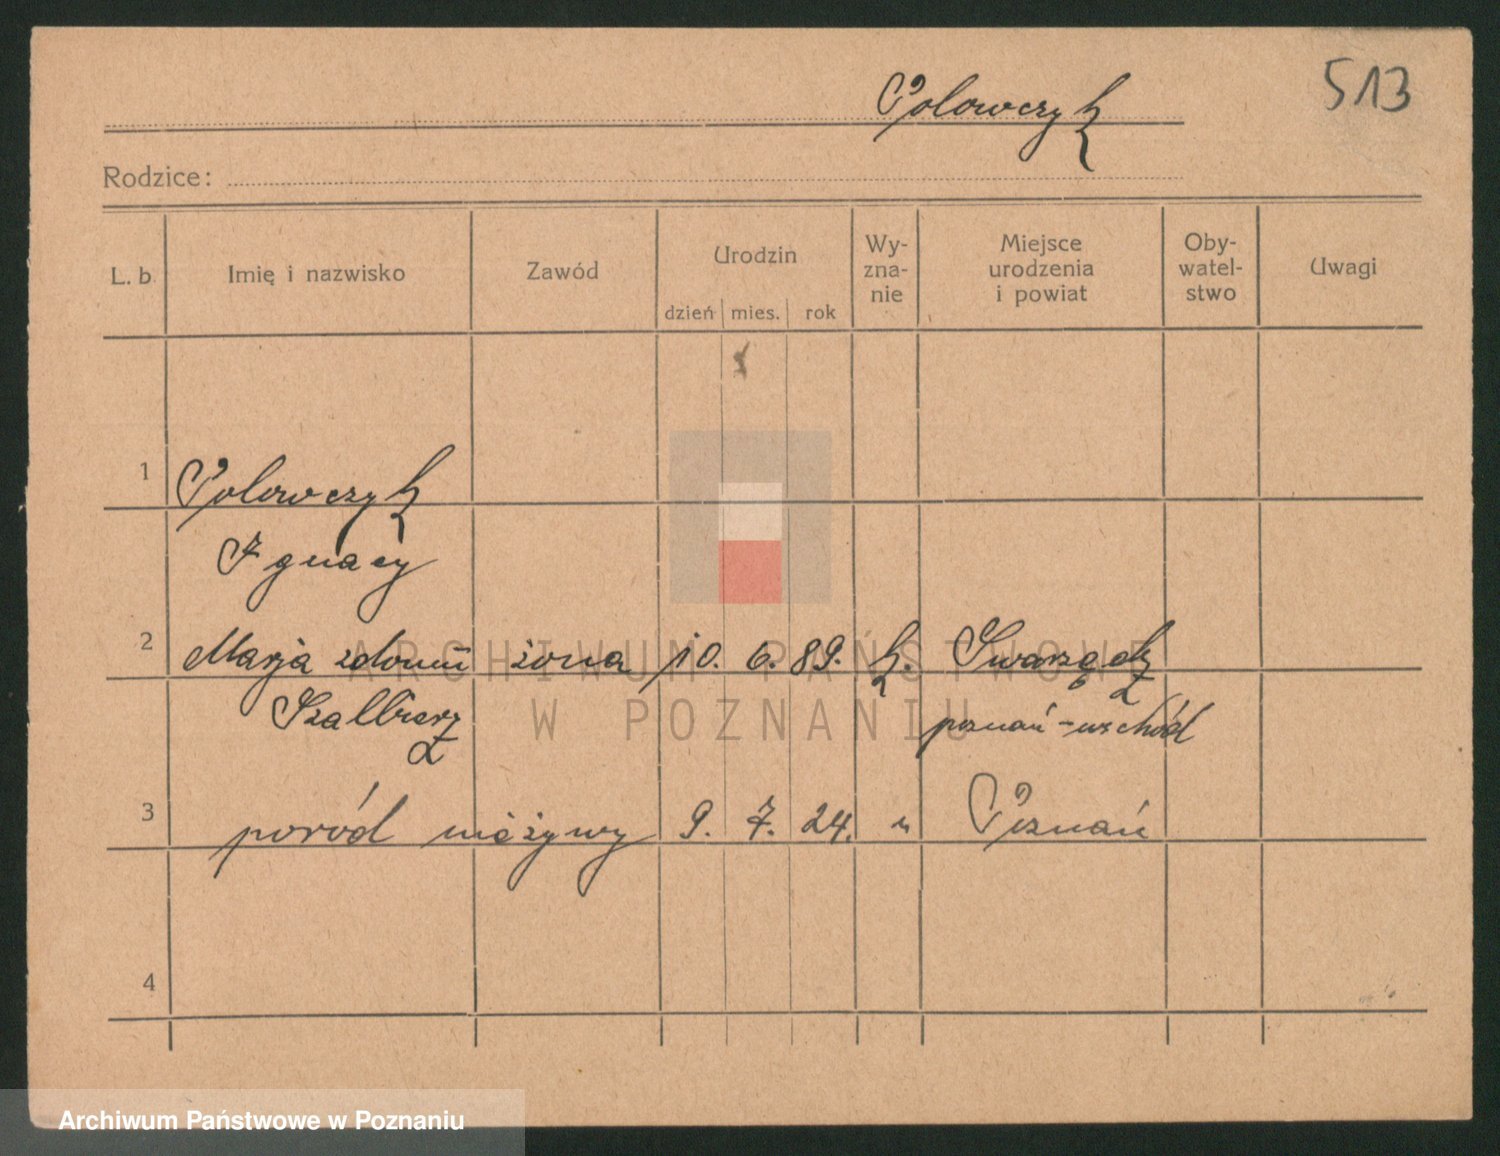 513
Polowczyk
Rodzice:
L. b. Imię i nazwisko Zawód Urodzin dzień mies. rok Wy-zna-nie Miejsce urodzenia i powiat Oby-watel-stwo Uwagi
1 Polowczyk
Ignacy
2 Marja zdomu żona 10. 6. 89. k. Swarzędz
Szalbierz poznań-wschód
3 poród nieżywy 9. 7. 24. " Poznań
4
ARCHIWUM PAŃSTWOWE
W POZNANIU
Archiwum Państwowe w Poznaniu